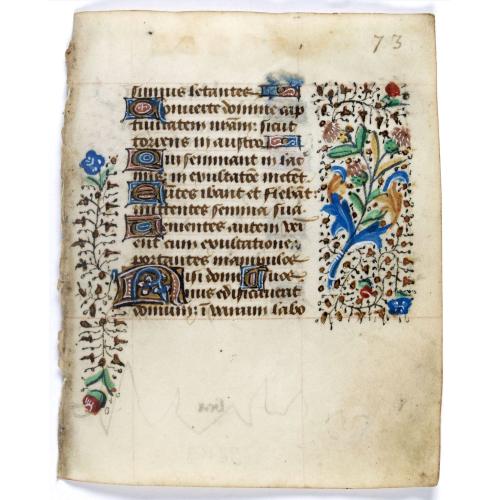 73
simus letantes
Converte domine cap
tiuitatem nram: sicut
torrens in austro
Qui seminant in lac
mis: in exultatōe metet
Euntes ibant et flebāt:
mittentes semina sua
Venientes autem ve
ent cum exultatione:
portantes manipulos
Nisi dom̄ suos
nus edificauerit
domum: ī vanum labo